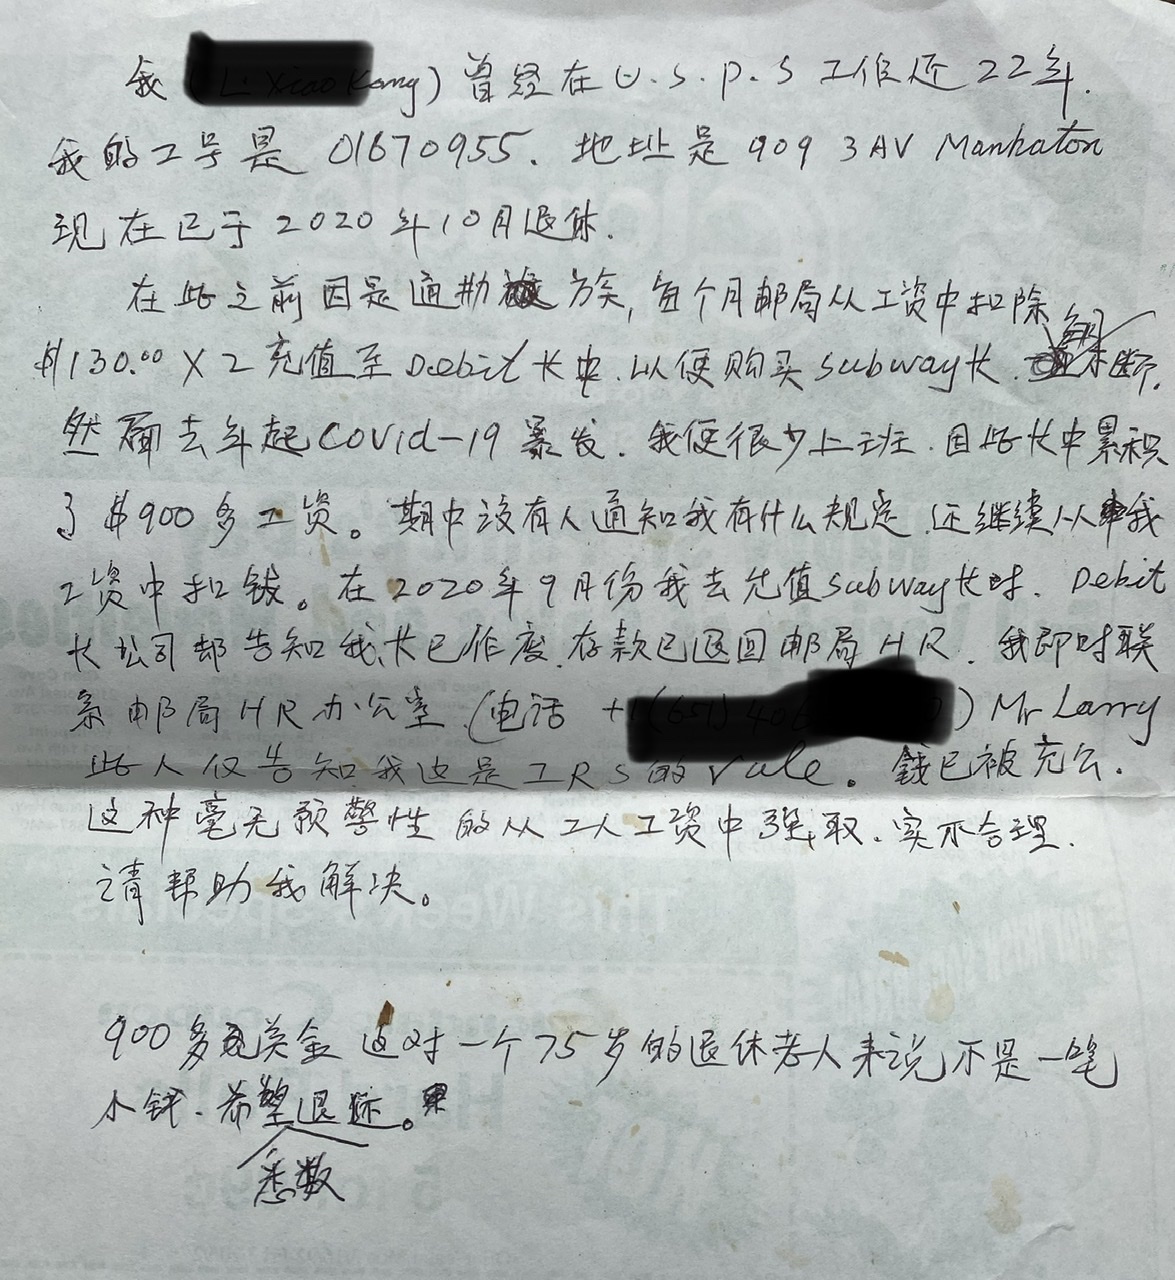 我 ( ) 曾经在 U.S.P.S 工作近 22年.
我的工号是 01670955. 地址是 909 3AV Manhaton
现在已于 2020年10月退休.
在此之前因是通勤族, 每个月邮局从工资中扣除
$130.00 X 2 充值至 Debit 卡中. 以便购买 subway卡.
然而去年起 Covid-19 暴发. 我便很少上班. 因此卡中累积
了 $900多工资。期中没有人通知我有什么规定. 还继续从我
工资中扣钱。在 2020年9月份我去充值 subway卡时. Debit
卡公司却告知我, 卡已作废. 存款已退回邮局 HR. 我即时联
系邮局 HR 办公室 (电话 ) Mr Larry
此人仅告知我这是 IRS 的 rule。錢已被充公.
这种毫无预警性的从工人工资中强取. 实不合理.
请帮助我解决。
900多美金 这对一个75岁的退休老人来说不是一笔
小钱. 希望悉数退还。